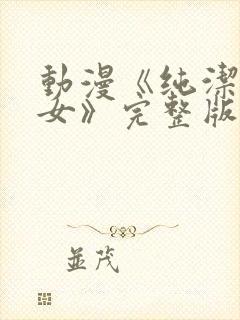 動漫《純潔
女》完整版
並茂